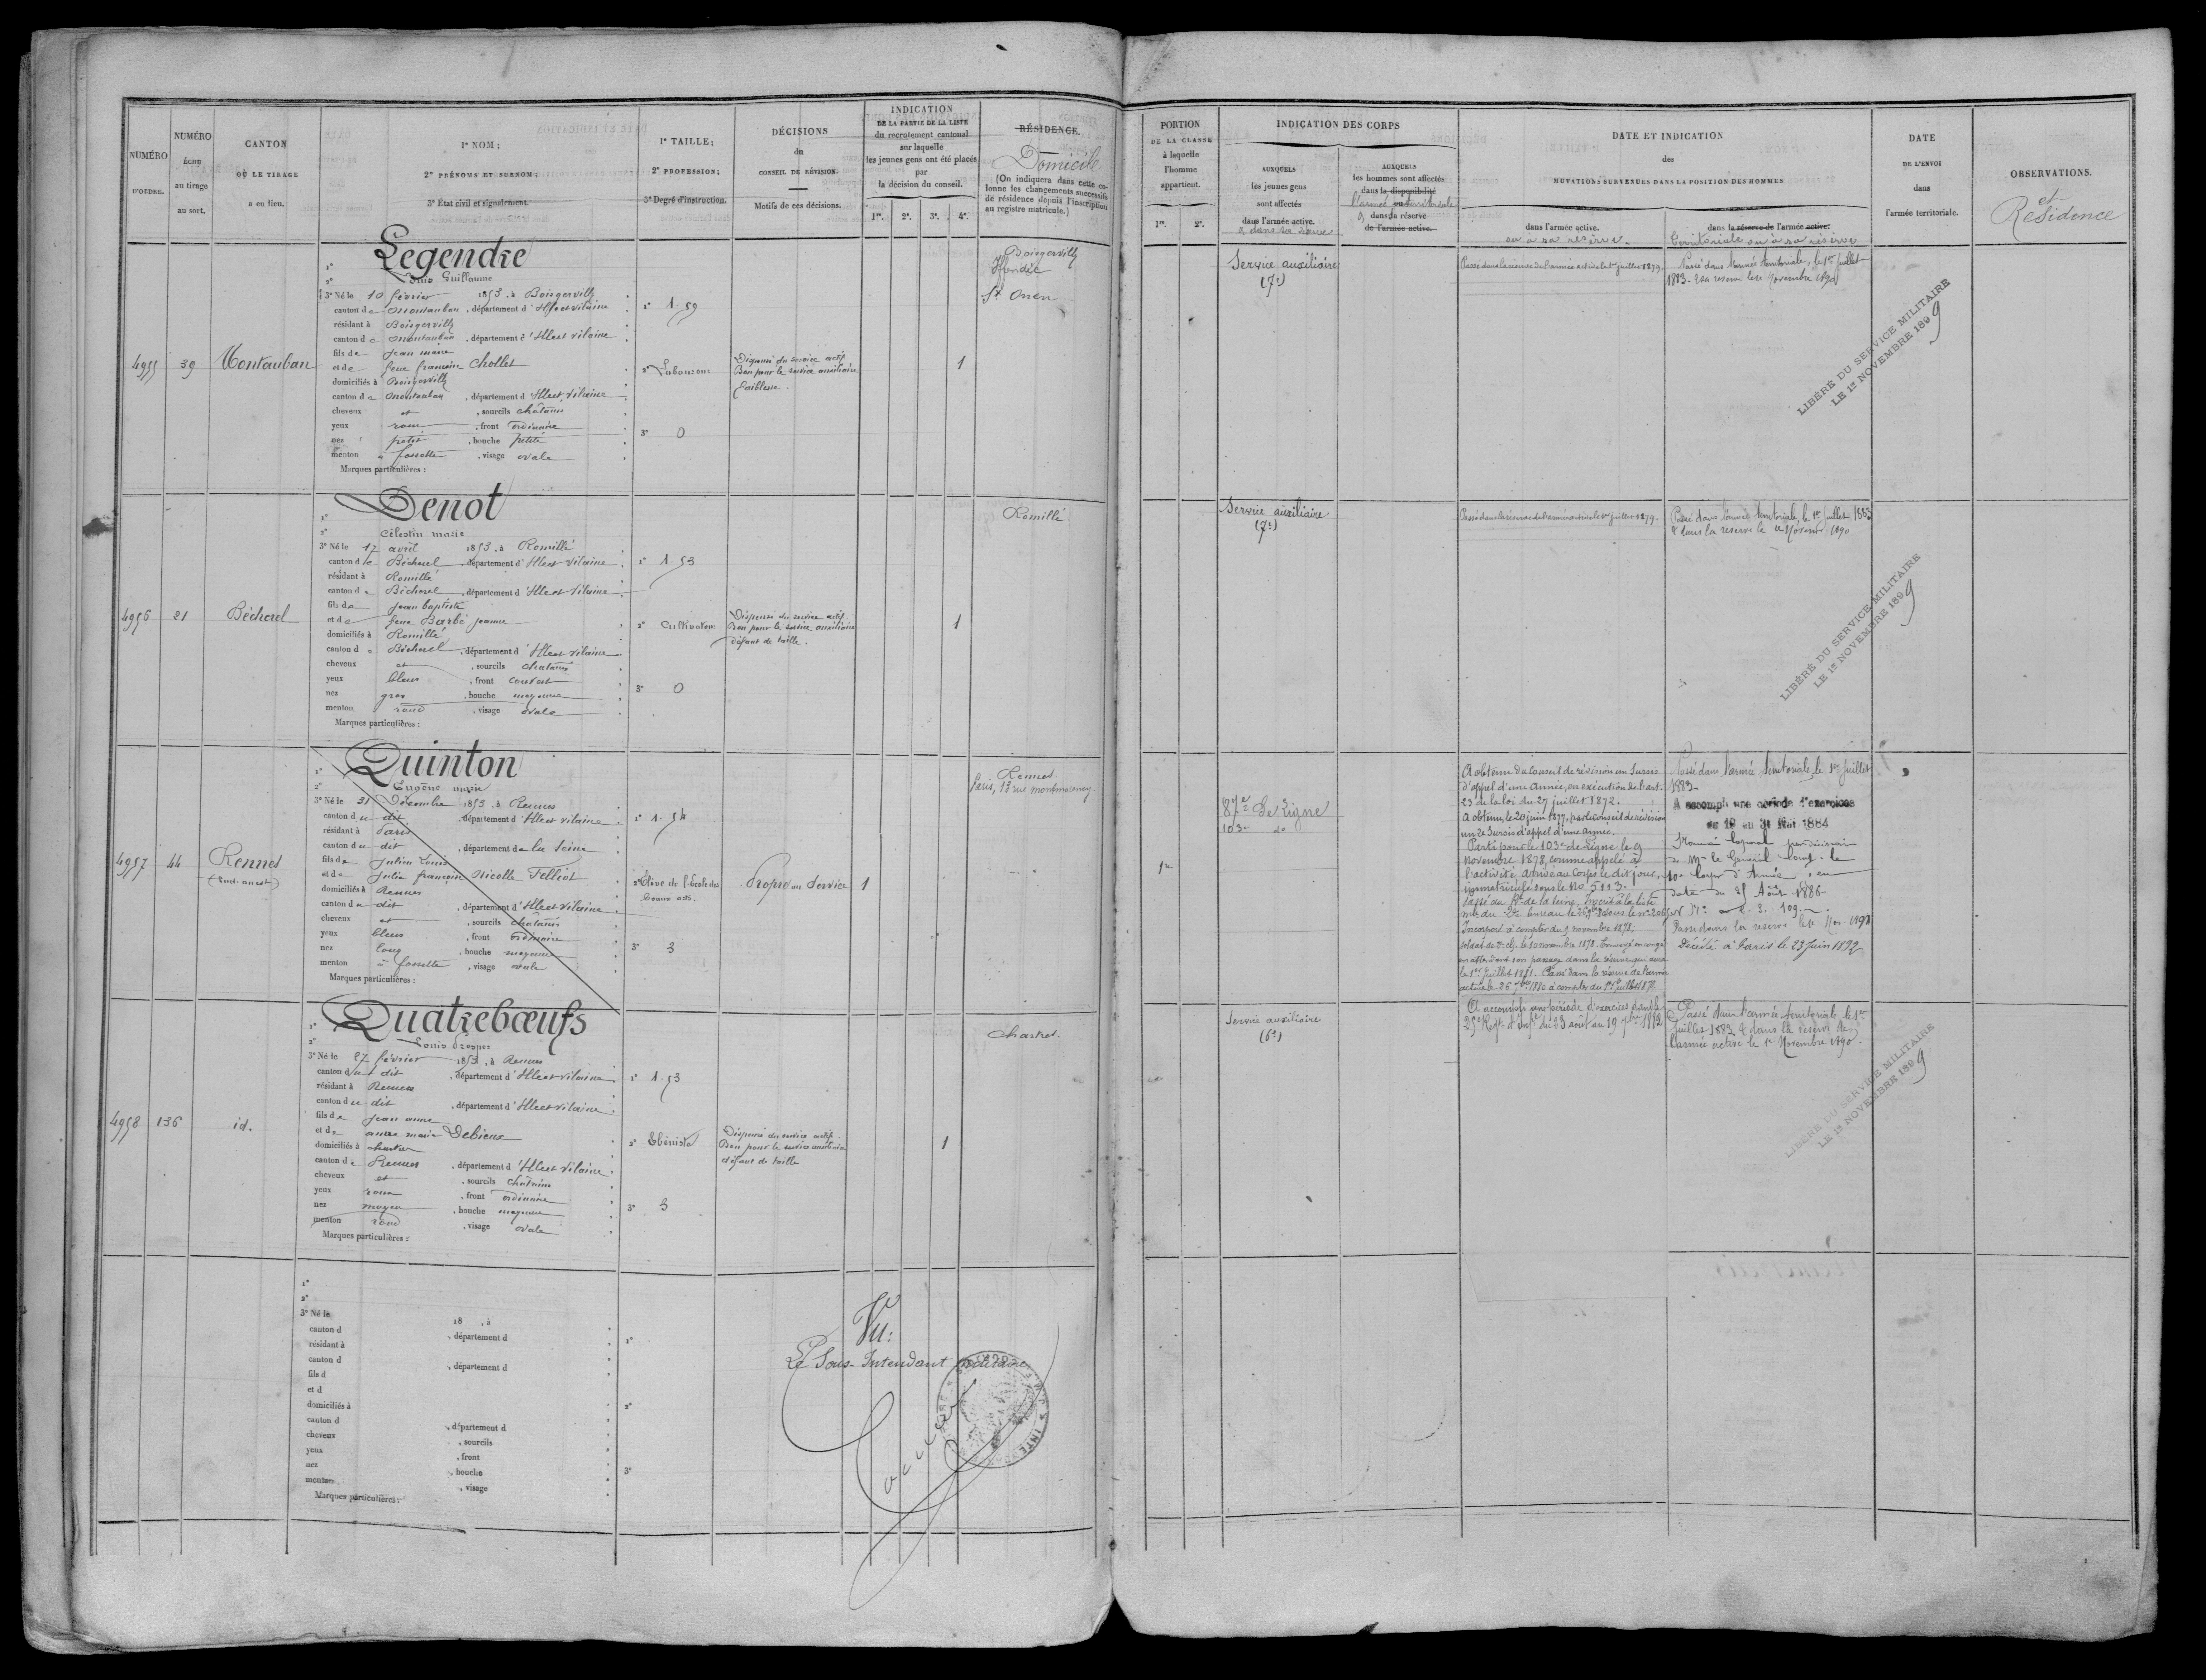 NUMÉRO
D'ORDRE.
NUMÉRO
échu
au tirage
au sort.
CANTON
OÙ LE TIRAGE
a eu lieu.
1º NOM;
2º PRÉNOMS ET SURNOM;
3º État civil et signalement.
1º TAILLE;
2º PROFESSION;
3º Degré d'instruction.
DÉCISIONS
du
CONSEIL DE RÉVISION.
Motifs de ces décisions.
INDICATION
DE LA PARTIE DE LA LISTE
du recrutement cantonal
sur laquelle
les jeunes gens ont été placés
par
la décision du conseil.
1re. 2e. 3e. 4e.
RÉSIDENCE.
Domicile
(On indiquera dans cette co-
lonne les changements successifs
de résidence depuis l'inscription
au registre matricule.)
4955
39
Montauban
Legendre
1º
2º Louis Guillaume
3º Né le 10 février 1853, à Boisgervilly
canton de Montauban, département d'Ille et Vilaine
résidant à Boisgervilly
canton de Montauban, département d'Ille et Vilaine
fils de Jean marie
et de feue françoise Chollet
domiciliés à Boisgervilly
canton de Montauban, département d'Ille et Vilaine
cheveux et, sourcils châtains
yeux roux, front ordinaire
nez petit, bouche petite
menton à fossette, visage ovale
Marques particulières :
1º 1.59
2º Laboureur
3º 0
Dispensé du service actif
Bon pour le service auxiliaire
faiblesse.
1
Boisgervilly
Iffendic
St Onen
4956
21
Bécherel
Denot
1º
2º Célestin marie
3º Né le 17 avril 1853, à Romillé
canton de Bécherel, département d'Ille et Vilaine
résidant à Romillé
canton de Bécherel, département d'Ille et Vilaine
fils de Jean baptiste
et de feue Barbé Jeanne
domiciliés à Romillé
canton de Bécherel, département d'Ille et Vilaine
cheveux et, sourcils châtains
yeux bleus, front couvert
nez gros, bouche moyenne
menton rond, visage ovale
Marques particulières :
1º 1.53
2º Cultivateur
3º 0
Dispensé du service actif.
Bon pour le service auxiliaire
défaut de taille.
1
Romillé
4957
44
Rennes
(Sud-ouest)
Quinton
1º
2º Eugène marie
3º Né le 31 Décembre 1853, à Rennes
canton du dit, département d'Ille et Vilaine
résidant à Paris
canton du dit, département de la Seine
fils de Julien Louis
et de Julie françoise Nicolle Telliot
domiciliés à Rennes
canton du dit, département d'Ille et Vilaine
cheveux et, sourcils châtains
yeux bleus, front ordinaire
nez long, bouche moyenne
menton à fossette, visage ovale
Marques particulières :
1º 1.54
2º Elève de l'Ecole des
beaux arts.
3º 3
Propre au Service
1
Rennes.
Paris, 13 rue montmorency
4958
136
id.
Quatrebœufs
1º
2º Louis
3º Né le 27 février 1853, à Rennes
canton du dit, département d'Ille et Vilaine
résidant à Rennes
canton du dit, département d'Ille et Vilaine
fils de Jean
et de marie Debieue
domiciliés à Chartres
canton de Rennes, département d'Ille et Vilaine
cheveux et, sourcils châtains
yeux roux, front ordinaire
nez moyen, bouche moyenne
menton rond, visage ovale
Marques particulières :
1º 1.53
2º Ebéniste
3º 3
Dispensé du service actif.
Bon pour le service auxiliaire
défaut de taille
1
Chartres.
1º
2º
3º Né le 18 , à
canton d , département d
résidant à
canton d , département d
fils d
et d
domiciliés à
canton d , département d
cheveux , sourcils
yeux , front
nez , bouche
menton , visage
Marques particulières :
1º
2º
3º
Vu:
Le Sous-Intendant militaire
PORTION
DE LA CLASSE
à laquelle
l'homme
appartient.
1re. 2e.
INDICATION DES CORPS
AUXQUELS
les jeunes gens
sont affectés
dans l'armée active.
& dans sa réserve
AUXQUELS
les hommes sont affectés
dans la disponibilité
l'armée territoriale
ou dans la réserve
de l'armée active.
DATE ET INDICATION
des
MUTATIONS SURVENUES DANS LA POSITION DES HOMMES
dans l'armée active.
ou à sa réserve.
dans la réserve de l'armée active.
territoriale ou à sa réserve
DATE
DE L'ENVOI
dans
l'armée territoriale.
OBSERVATIONS.
et
Résidence
Service auxiliaire
(7e)
Passé dans la réserve de l'armée active le 1er juillet 1879.
Passé dans l'armée territoriale, le 1er Juillet
1883. & sa réserve le 1er Novembre 1890
LIBÉRÉ DU SERVICE MILITAIRE
LE 1er NOVEMBRE 1899
Service auxiliaire
(7e)
Passé dans la réserve de l'armée active le 1er juillet 1879.
Passé dans l'armée territoriale, le 1er Juillet 1883
& dans la réserve le 1er Novembre 1890
LIBÉRÉ DU SERVICE MILITAIRE
LE 1er NOVEMBRE 1899
1re
87e de Ligne
103e do
A obtenu du Conseil de révision un Sursis
d'appel d'une Année, en exécution de l'art.
23 de la loi du 27 juillet 1872.
A obtenu, le 20 juin 1877, par le Conseil de révision
un 2e Sursis d'appel d'une année.
Parti pour le 103e de Ligne le 9
novembre 1878, comme appelé à
l'activité. Arrivé au Corps le dit jour,
immatriculé sous le No 5113.
Passé du de la Seine. Inscrit à la liste
mle du 2e bureau le sous le no
Incorporé à compter du 9 novembre 1878.
soldat de 2e cl. le 10 novembre 1878. Envoyé en congé
en attendant son passage dans la réserve qui aura
le 1er Juillet 1881. Passé dans la réserve de l'armée
active le 26 7bre 1880 à compter du 1er Juillet
Passé dans l'armée territoriale le 1er Juillet
1883.
A accompli une période d'exercices
du 19 au 31 Mai 1884
par décision
de Mr le Général Comt. le
10e Corps d'Armée, en
date du 25 Août 1886.
No 2. 3. 109.
Passé dans la réserve le 1er Nov. 1890
Décédé à Paris le 23 Juin 1892
Service auxiliaire
(6e)
A accompli une période d'exercices dans le
25e Regt d'Infie du 23 août au 19 7bre 1882
Passé dans l'armée territoriale le 1er
Juillet 1883 & dans la réserve de
l'armée active le 1er Novembre 1890.
LIBÉRÉ DU SERVICE MILITAIRE
LE 1er NOVEMBRE 1899